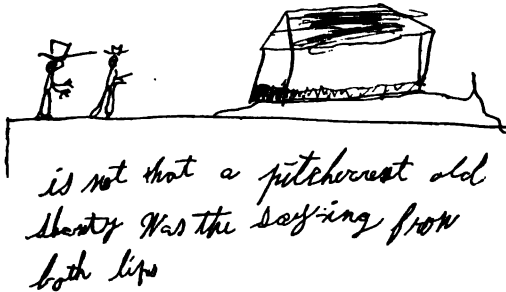 is not that a pitcherest old
shanty Was the saying from
both lips